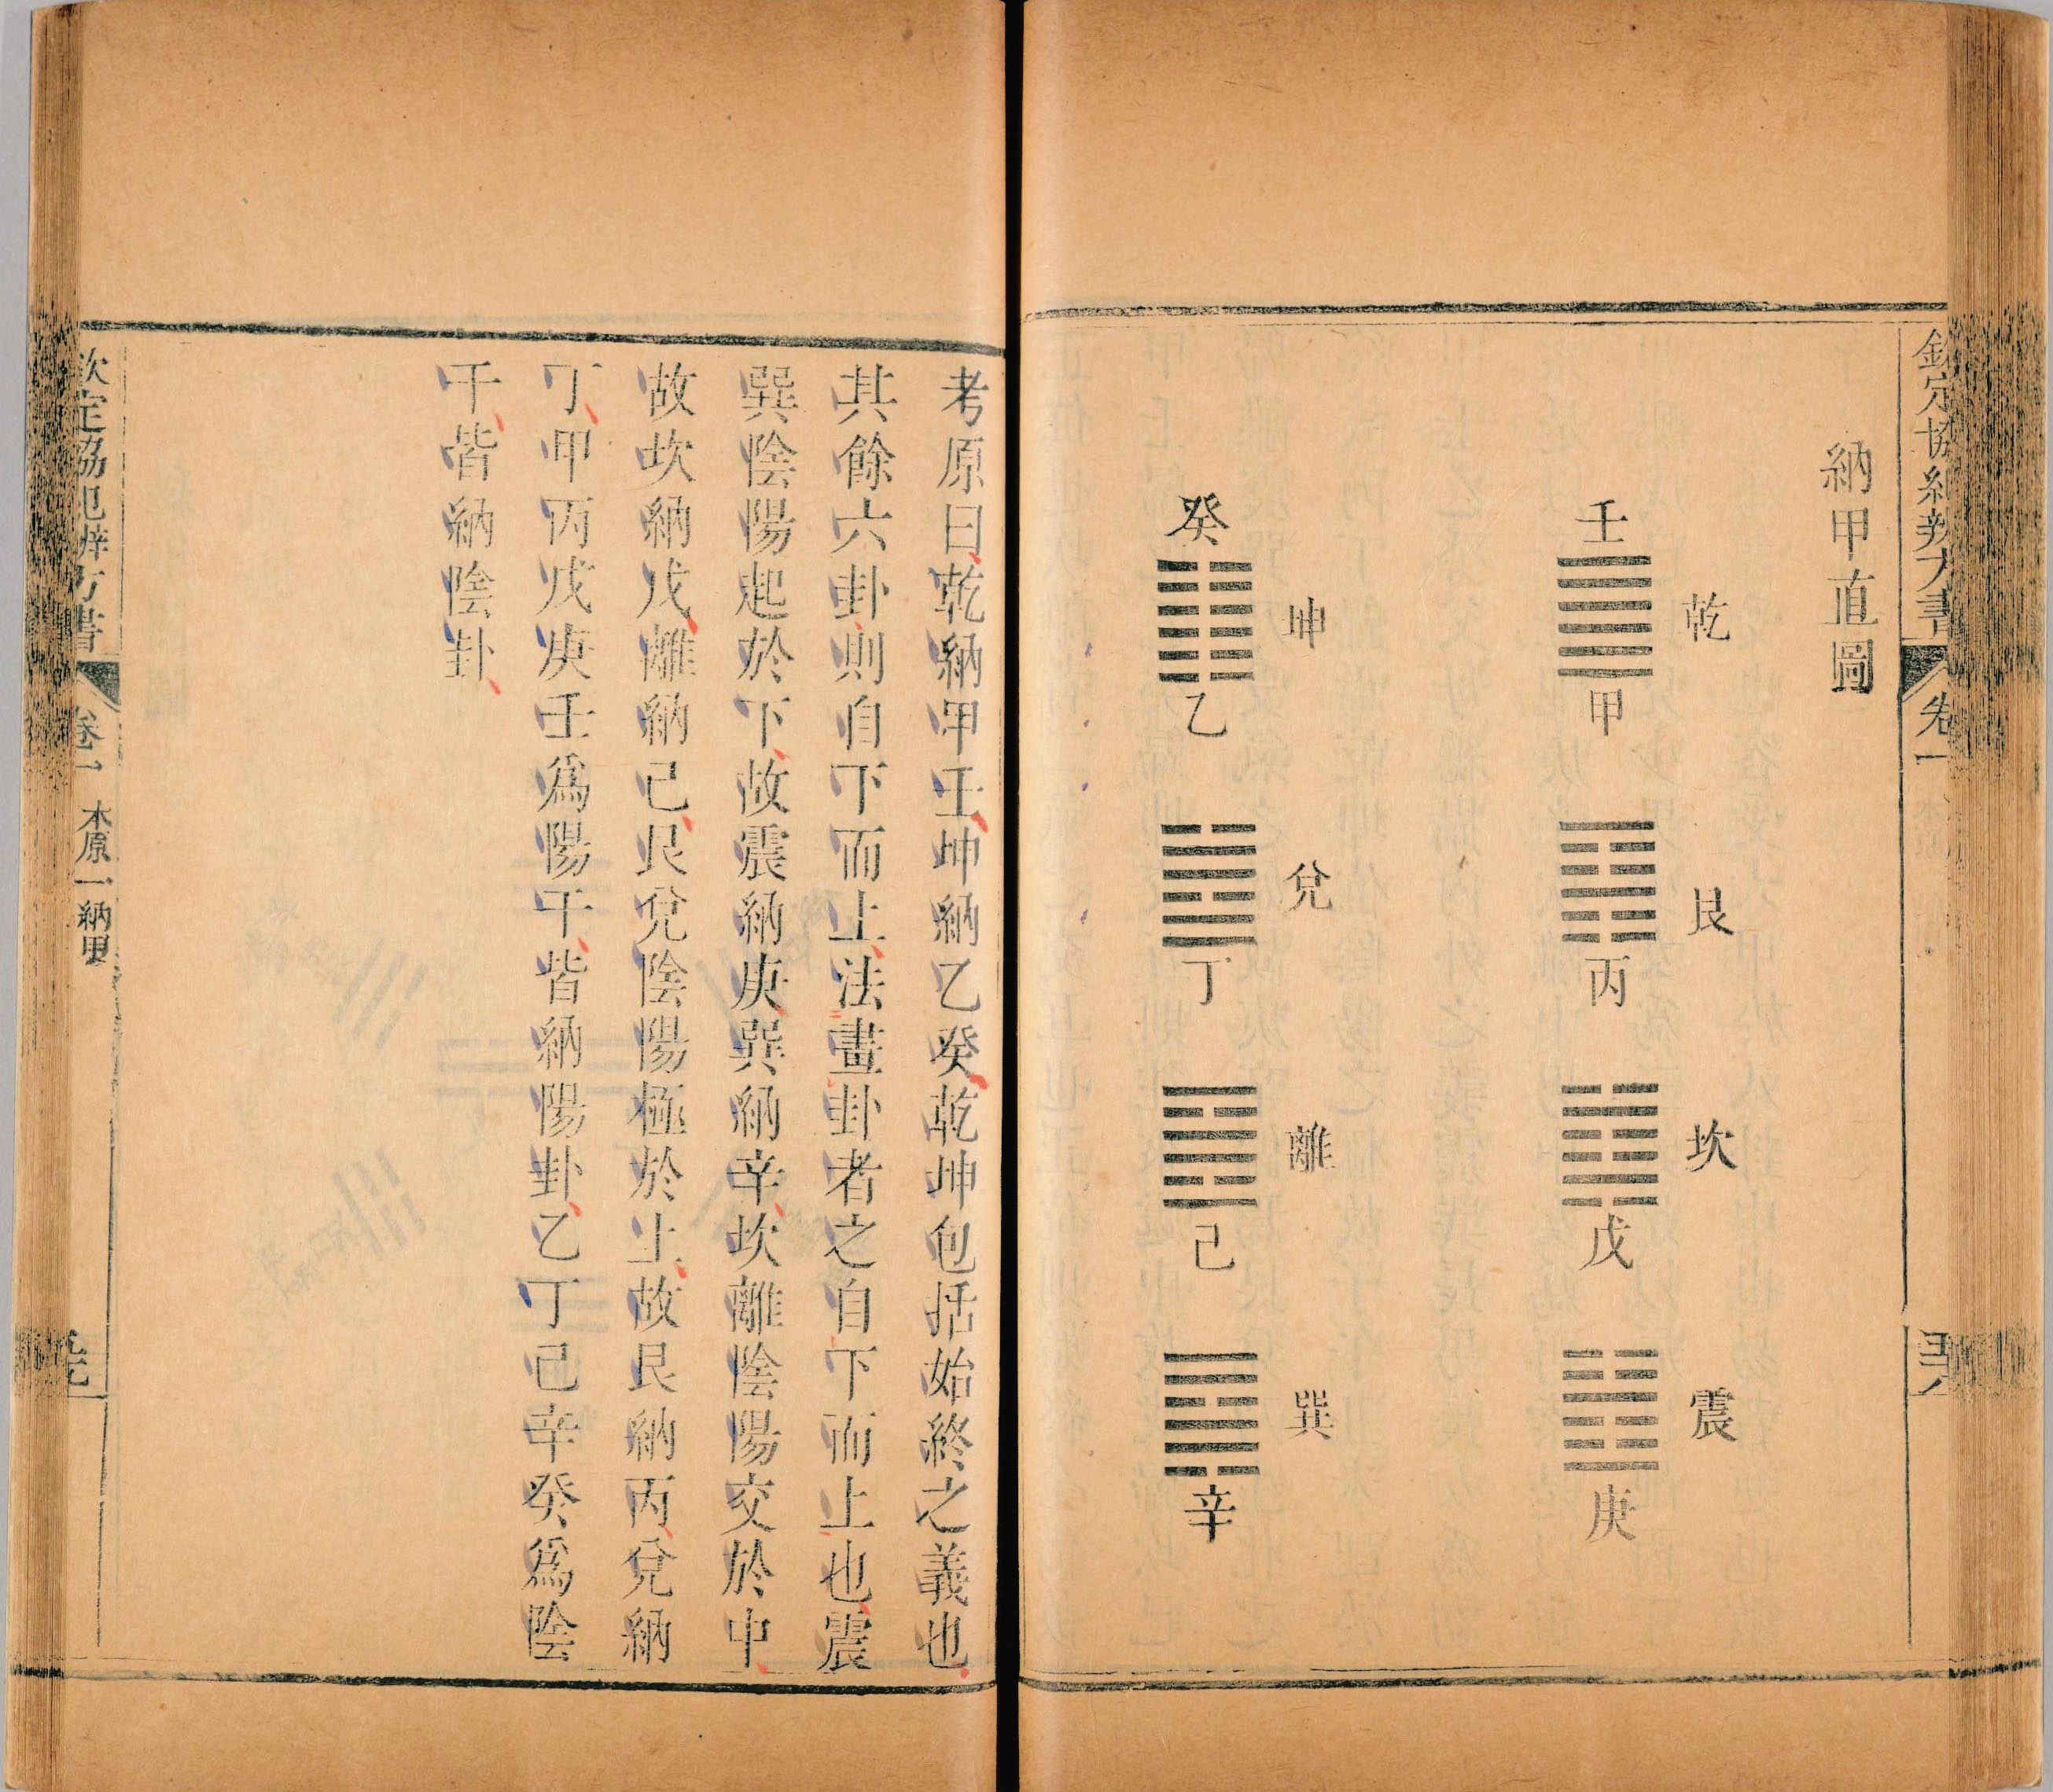 欽定協紀辨方書 卷一
納甲直圖
乾 艮 坎 震
壬 甲 丙 戊 庚
坤 兌 離 巽
癸 乙 丁 己 辛
考原曰乾納甲壬坤納乙癸乾坤包括始終之義也
其餘六卦則自下而上法畫卦者之自下而上也震
巽陰陽起於下故震納庚巽納辛坎離陰陽交於中
故坎納戊離納己艮兌陰陽極於上故艮納丙兌納
丁甲丙戊庚壬為陽干皆納陽卦乙丁己辛癸為陰
干皆納陰卦
欽定協紀辨方書 卷一 本原一 納甲